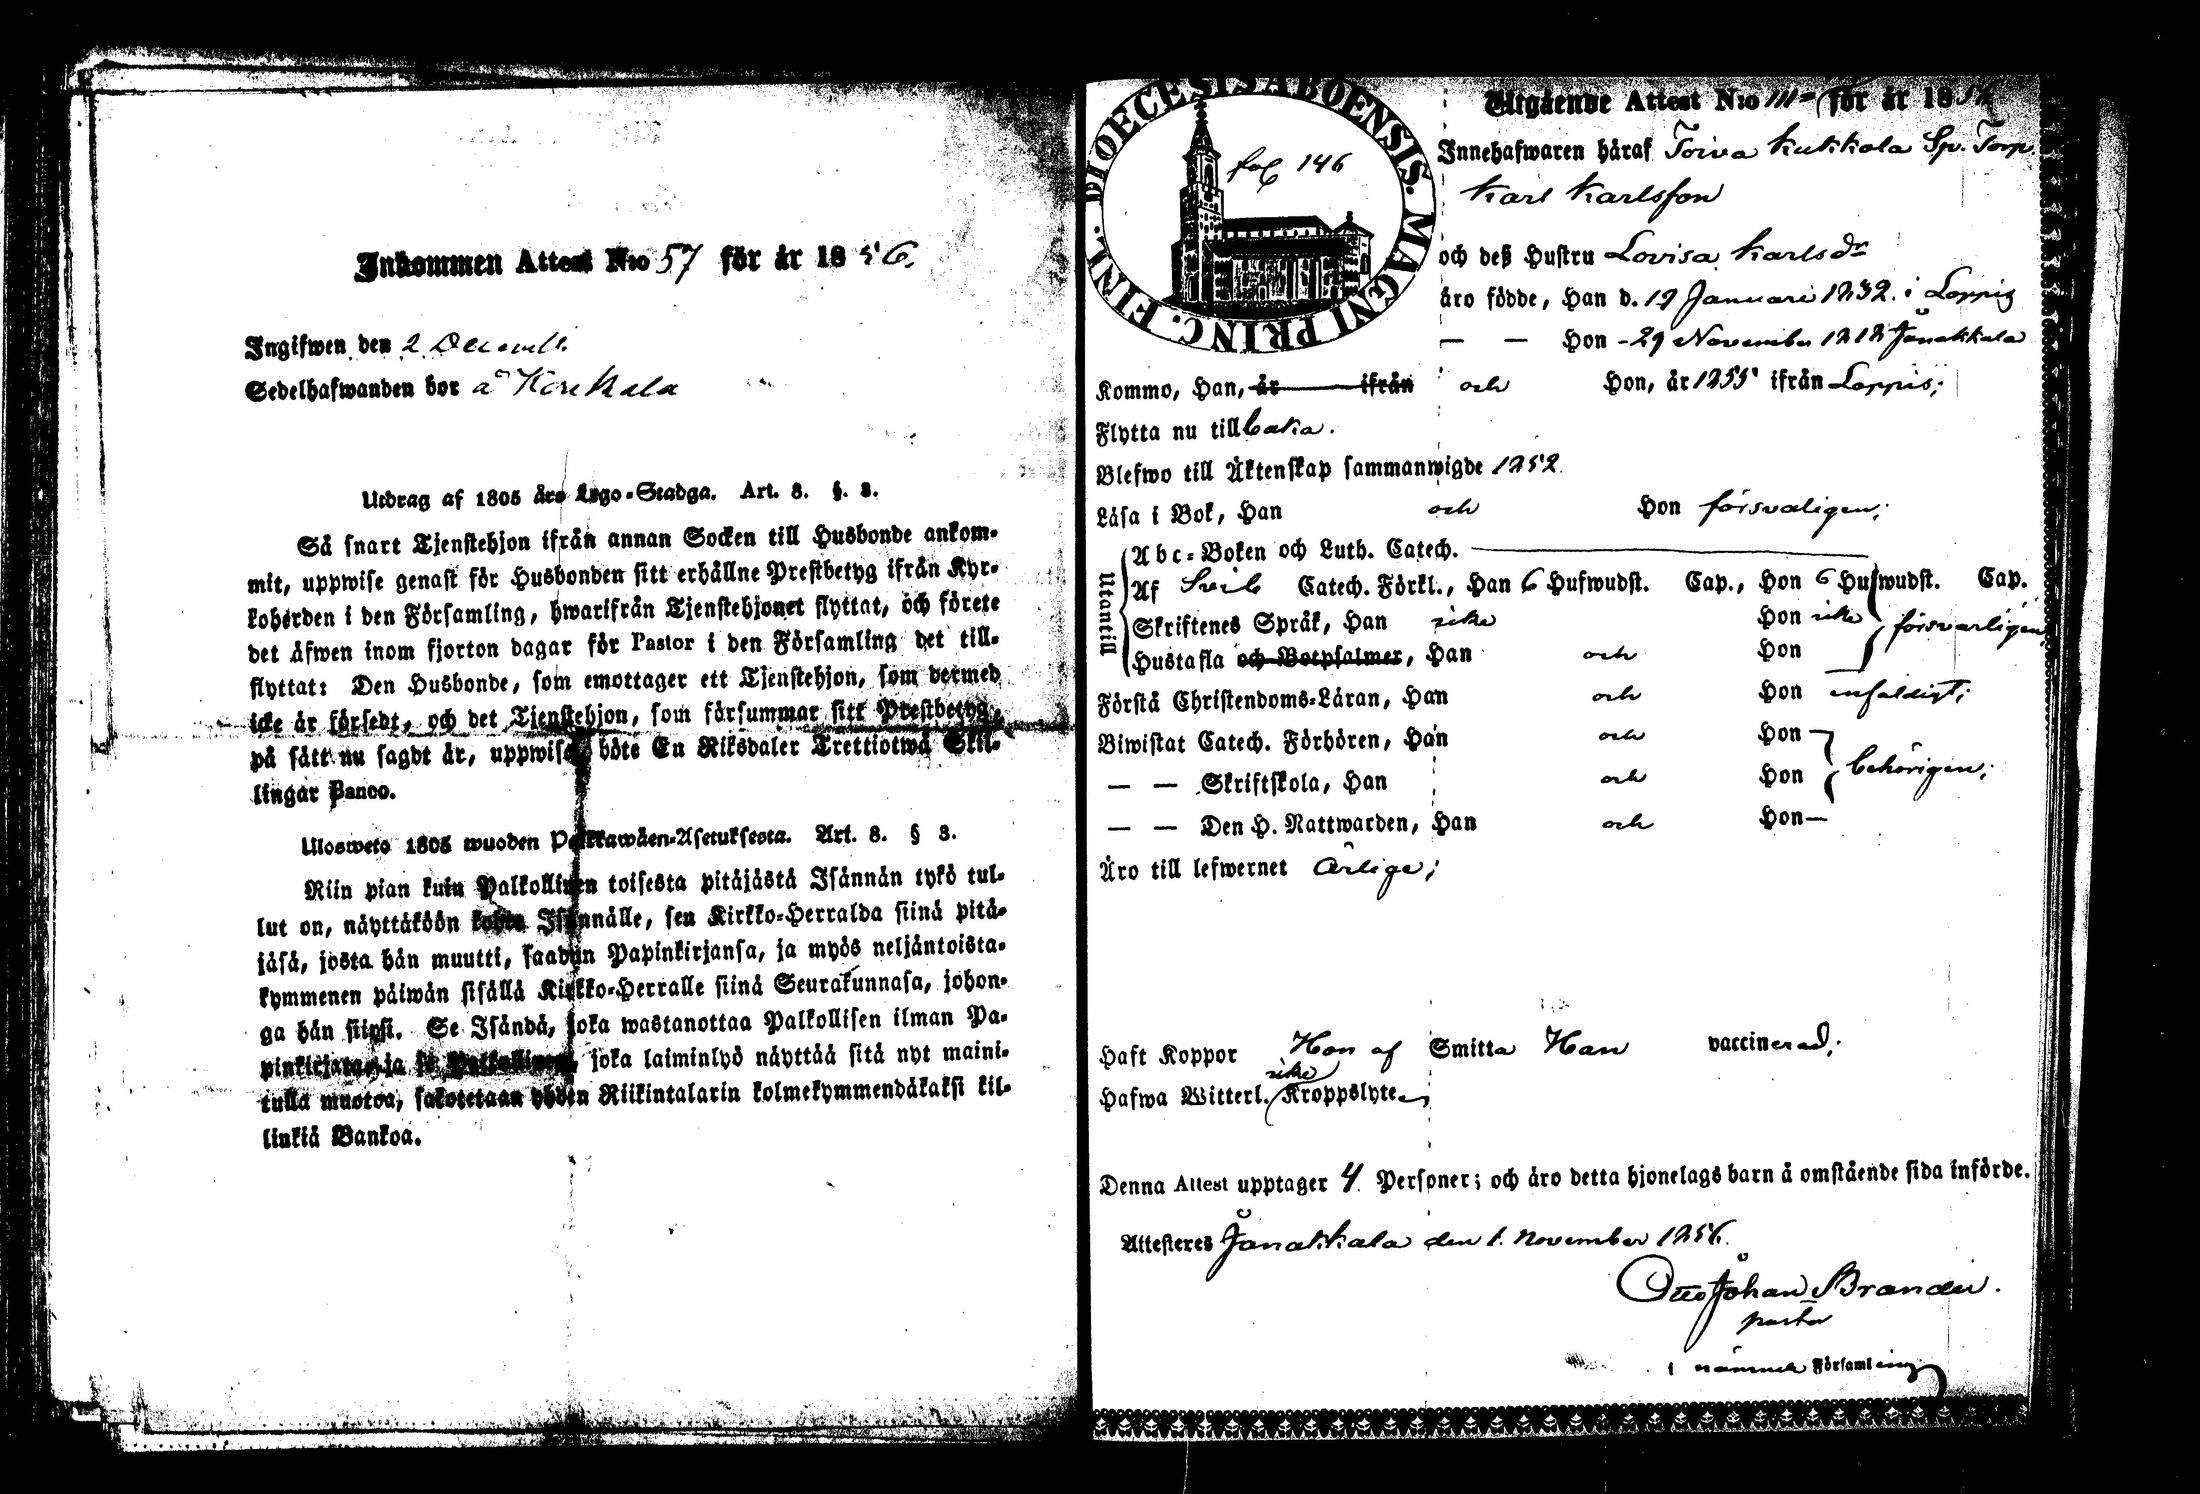 Inkommen Attest N:o 57 för år 1856.
Ingifwen den 2 Decemb.
Sedelhafwanden bor å
Utdrag af 1805 års Lego-Stadga. Art. 8. §. 3.
Så snart Tjenstehjon ifrån annan Socken till Husbonde ankom-
mit, uppwise genast för Husbonden sitt erhållne Prestbetyg ifrån Kyr-
koherden i den Församling, hwarifrån Tjenstehjonet flyttat, och förete
det äfwen inom fjorton dagar för Pastor i den Församling det till-
flyttat: Den Husbonde, som emottager ett Tjenstehjon, som dermed
icke är försedt, och det Tjenstehjon, som försummar sitt Prestbetyg,
på sätt nu sagdt är, uppwisa, böte En Riksdaler Trettiotwå Skil-
lingar Banco.
Ulosweto 1805 wuoden Palkkawäen-Asetuksesta. Art. 8. § 3.
Niin pian kuin Palkollinen toisesta pitäjästä Isännän tykö tul-
lut on, näyttäköön kohta Isännälle, sen Kirkko-Herralda siinä pitä-
jäsä, josta hän muutti, saadun Papinkirjansa, ja myös neljäntoista-
kymmenen päiwän sisällä Kirkko-Herralle siinä Seurakunnasa, johon-
ga hän siirsi. Se Isändä, joka wastanottaa Palkollisen ilman Pa-
pinkirjata, ja se Palkollinen, joka laiminlyö näyttää sitä nyt maini-
tulla muotoa, sakotetaan yhden Riikintalarin kolmekymmendäkaksi kil-
linkiä Bankoa.
DIOECESIS ABOENSIS. MAGNI PRINC. FINL.
fol 146
Utgående Attest N:o 111 för år 1856
Innehafwaren häraf Toiva Kukkola Sp. Torp.
Karl Karlsson
och deß Hustru Lovisa Karlsdr
äro födde, Han d. 19 Januari 1832. i Loppis
— — Hon - 29 November 1818 Janakkala
Kommo, Han, år ifrån och Hon, år 1855 ifrån Loppis;
Flytta nu till baka.
Blefwo till Äktenskap sammanwigde 1852.
Läsa i Bok, Han och Hon försvarligen;
Utantill
Abc-Boken och Luth. Catech.
Af Sveb Catech. Förkl., Han 6 Hufwudst. Cap., Hon 6 Hufwudst. Cap.
Skriftenes Språk, Han icke Hon icke försvarligen
Hustafla och Botpsalmer, Han och Hon
Förstå Christendoms-Läran, Han och Hon enfaldigt;
Biwistat Catech. Förhören, Han och Hon
— — Skriftskola, Han och Hon behörigen;
— — Den H. Nattwarden, Han och Hon —
Äro till lefwernet ärlige;
Haft Koppor Hon af Smitta Han vaccinerad;
icke
Hafwa Witterl. Kroppslyte
Denna Attest upptager 4. Personer; och äro detta hjonelags barn å omstående sida införde.
Attesteres Janakkala den 1. November 1856.
Otto Johan Brander.
pastor
i nämnde Församling